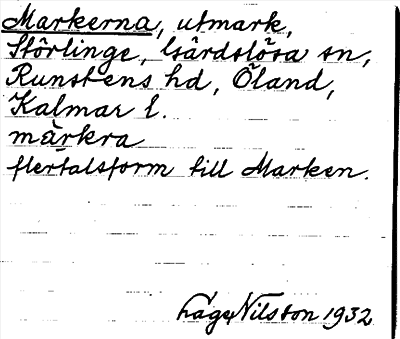 Markerna, utmark,
Störlinge, Gårdslösa sn,
Runstens hd, Öland,
Kalmar l.
märkra
flertalsform till Marken.
Lage Nilsson 1932